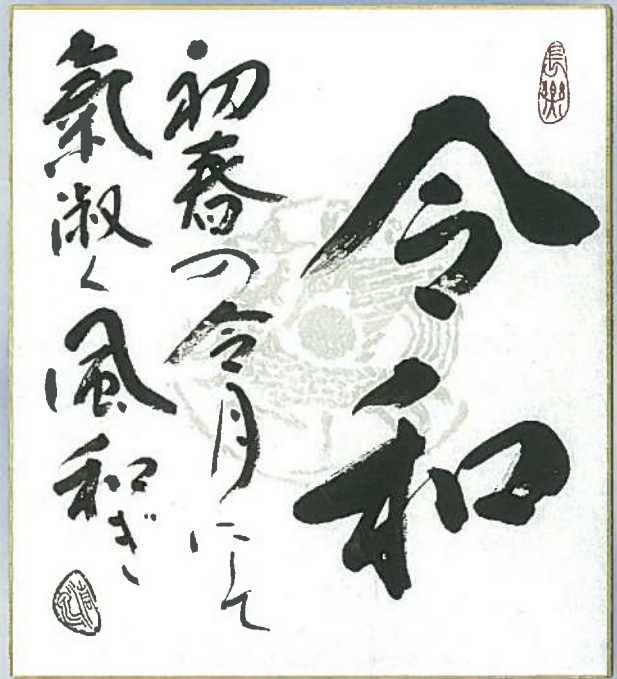 令和
初春の令月にして
氣淑く風和ぎ